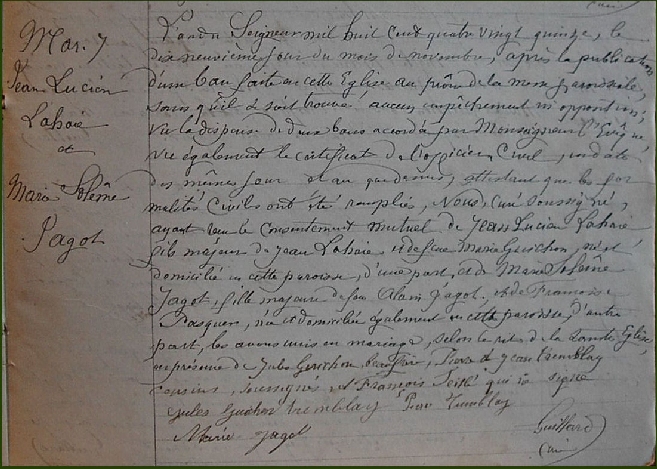 Mar. 7
Jean Lucien
Lahaie
et
Marie Solême
Jagot
L'an du Seigneur mil huit cent quatre vingt quinze, le
dix neuvième jour du mois de novembre, après la publication
d'un ban faite en cette Eglise au prône de la messe paroissiale,
sans qu'il se soit trouvé aucun empêchement ni opposition;
Vu la dispense de deux bans accordée par Monseigneur l'Evêque,
vu également le certificat de l'officier Civil, en date
des mêmes jour et an que dessus, attestant que les for
malités civiles ont été remplies, Nous, curé soussigné,
ayant reçu le consentement mutuel de Jean Lucien Lahaie
fils majeur de Jean Lahaie, et de feue Marie Guichon, né et
domicilié en cette paroisse, d'une part, et de Marie Solême
Jagot, fille majeure de feu Alain Jagot, et de Françoise
née et domiciliée également en cette paroisse, d'autre
part, les avons unis en mariage, selon le rite de la Sainte Eglise,
en présence de Jules Guichon beau frère, Pierre et Jean Tremblay
cousins, soussignés et François qui a signé
Jules Guichon Tremblay Pierre Tremblay
Marie Jagot
Guillard